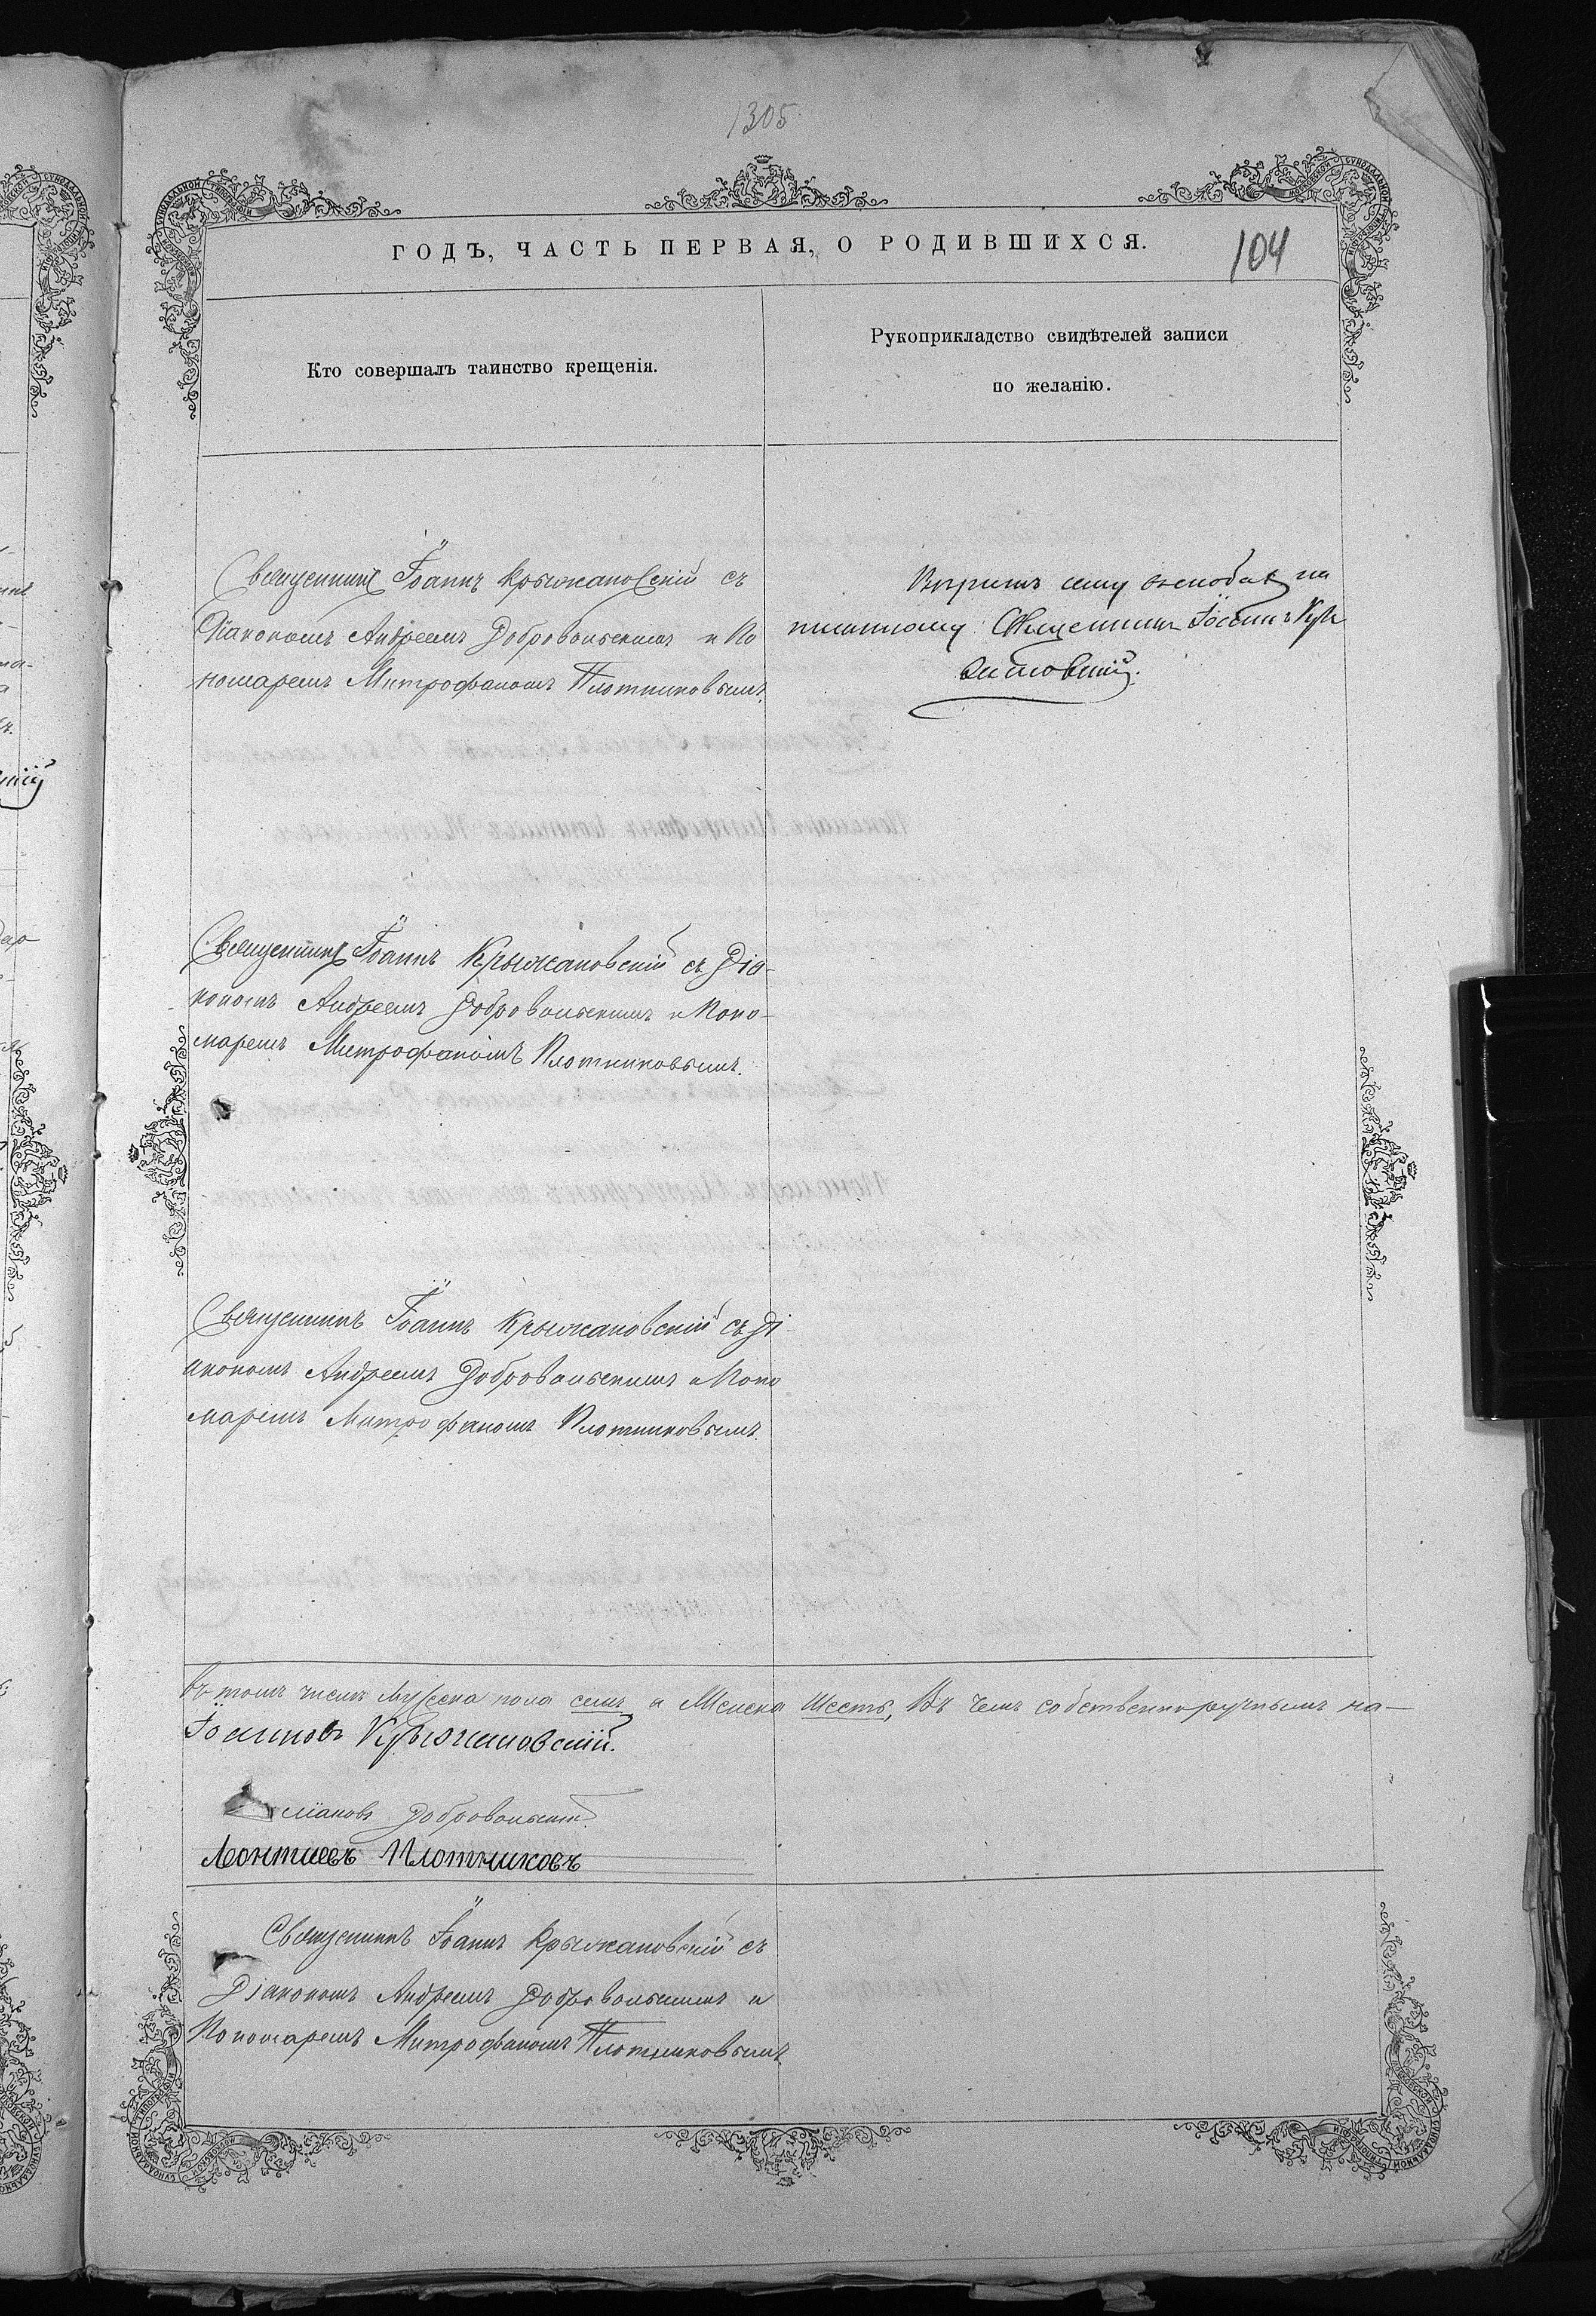 1305
ГОДЪ, ЧАСТЬ ПЕРВАЯ, О РОДИВШИХСЯ.
104
Кто совершалъ таинство крещенія.
Рукоприкладство свидѣтелей записи
по желанію.
Священникъ Іоаннъ Крыжановскій съ
Діакономъ Андреемъ Добровольскимъ и По
номаремъ Митрофаномъ Плотниковымъ.
сему
Священникъ
Священникъ Іоаннъ Крыжановскій съ Діа-
кономъ Андреемъ Добровольскимъ и Поно-
маремъ Митрофаномъ Плотниковымъ.
Священникъ Іоаннъ Крыжановскій съ Ді
акономъ Андреемъ Добровольскимъ и Поно
маремъ Митрофаномъ Плотниковымъ.
въ томъ числѣ мужеска пола семь и Женска Шесть, Въ чемъ собственноручнымъ на-
Іоанновъ Крыжановскій.
Добровольскій.
Леонтіевъ Плотниковъ
Священникъ Іоаннъ Крыжановскій съ
Діакономъ Андреемъ Добровольскимъ и
Пономаремъ Митрофаномъ Плотниковымъ.